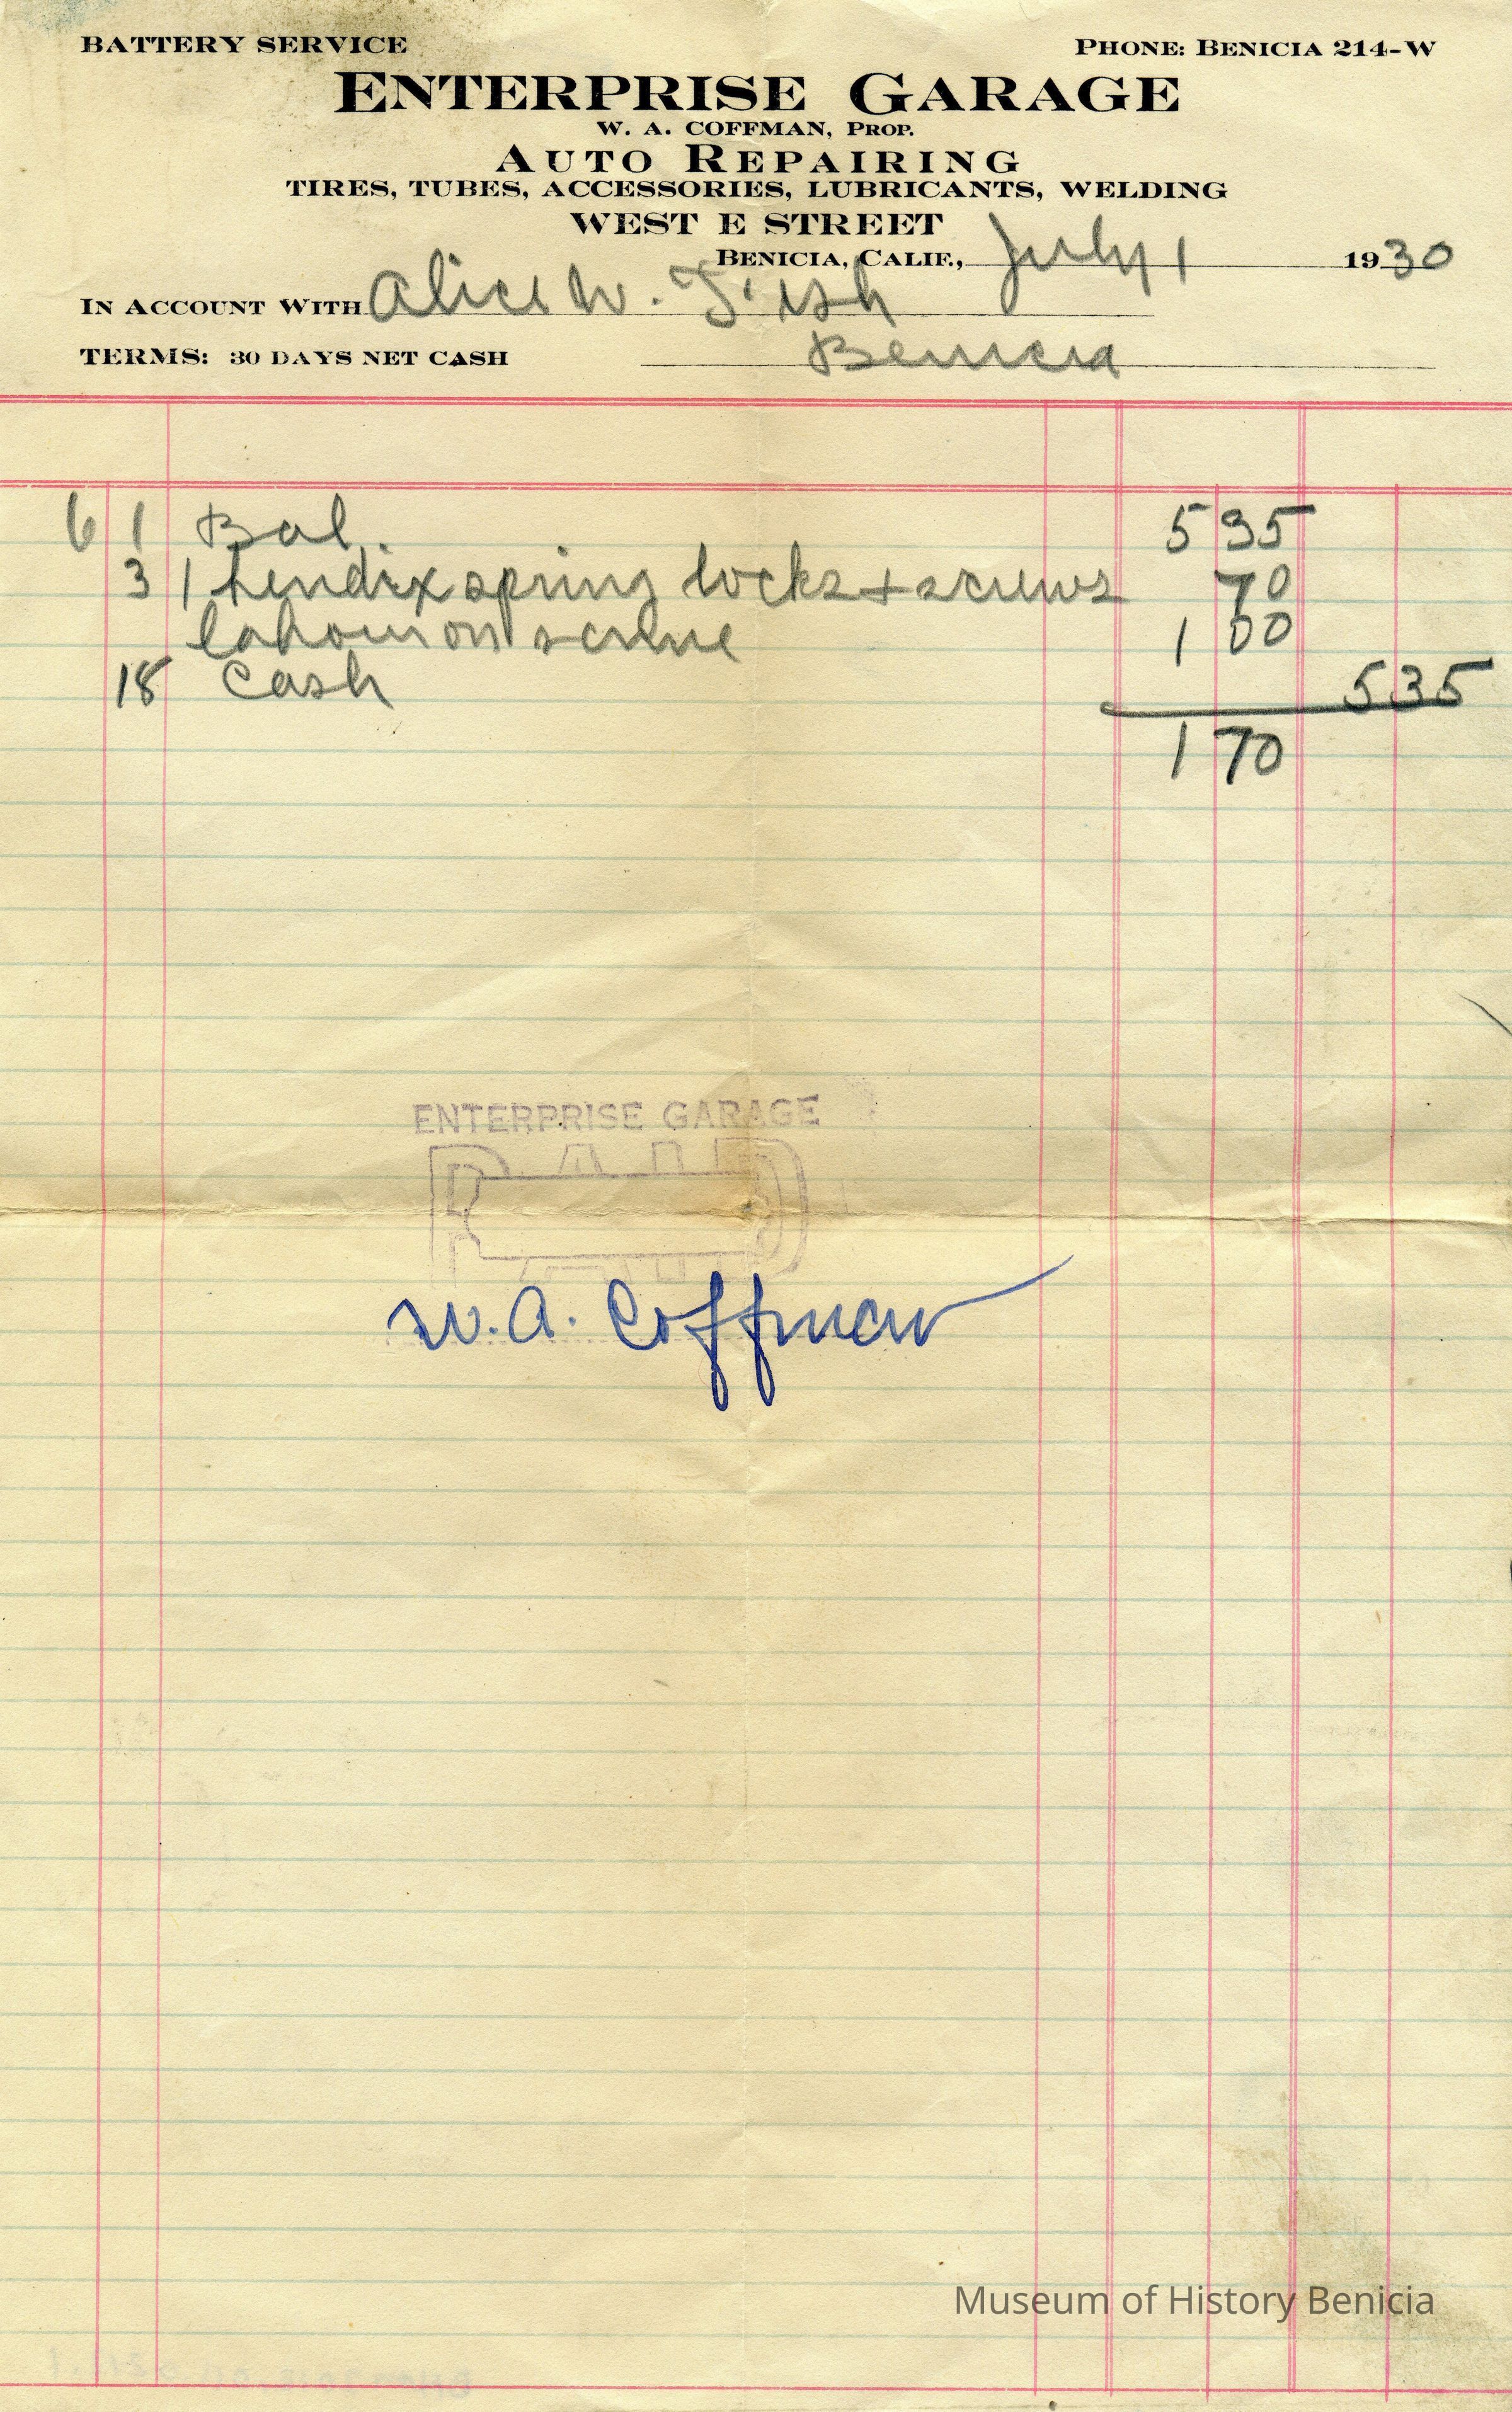 BATTERY SERVICE
PHONE: BENICIA 214-W
ENTERPRISE GARAGE
W. A. COFFMAN, PROP.
AUTO REPAIRING
TIRES, TUBES, ACCESSORIES, LUBRICANTS, WELDING
WEST E STREET
BENICIA, CALIF., July 1 1930
IN ACCOUNT WITH Alice W. Fish
TERMS: 30 DAYS NET CASH Benicia
6 1 Bal. 5 35
3 1 bendix spring locks + screws 70
labour on 1 00
18 Cash 5 35
1 70
ENTERPRISE GARAGE
PAID
W. A. Coffman
Museum of History Benicia